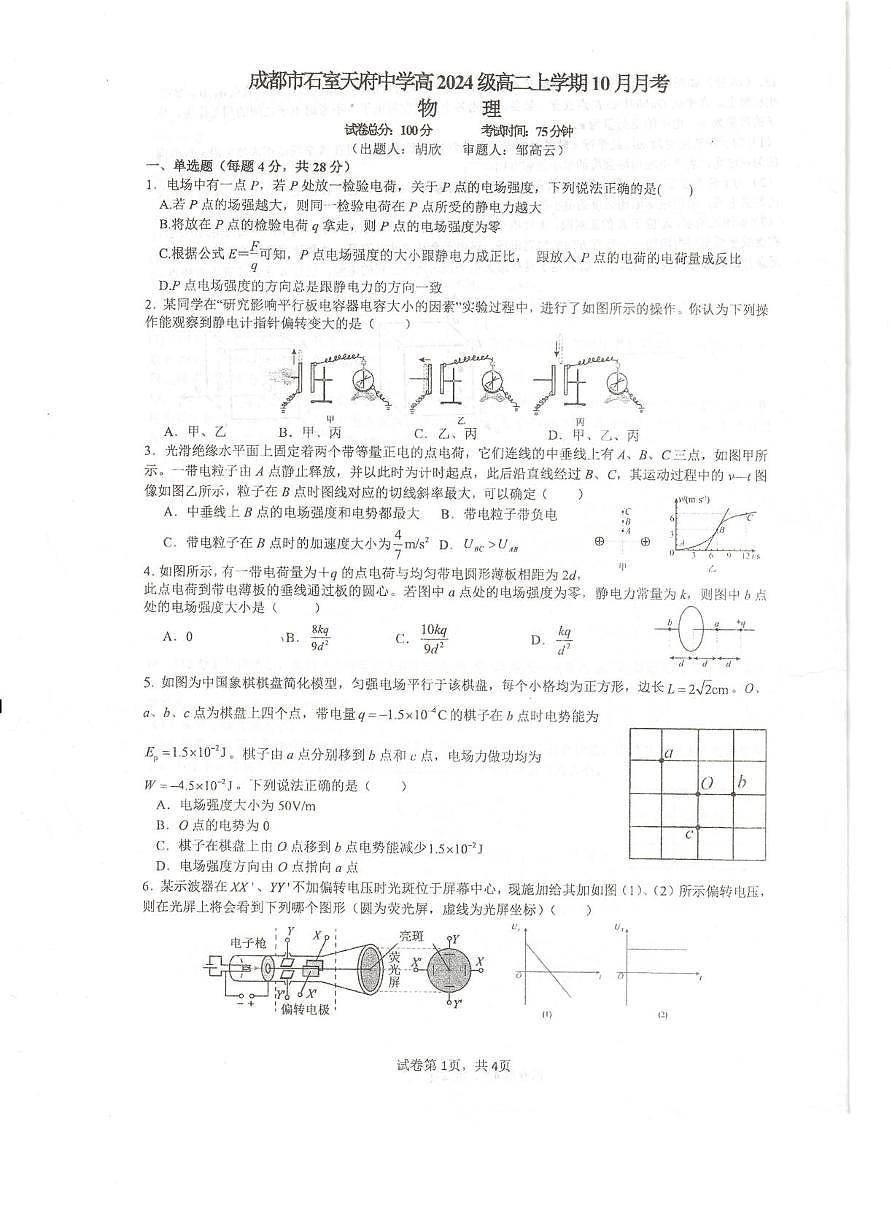 成都市石室天府中学高2024级高二上学期10月月考
物 理
试卷总分：100分 考试时间：75分钟
（出题人：胡欣 审题人：邹高云）
一、单选题（每题4分，共28分）
1. 电场中有一点P，若P处放一检验电荷，关于P点的电场强度，下列说法正确的是( )
A.若P点的场强越大，则同一检验电荷在P点所受的静电力越大
B.将放在P点的检验电荷q拿走，则P点的电场强度为零
C.根据公式E=F/q可知，P点电场强度的大小跟静电力成正比， 跟放入P点的电荷的电荷量成反比
D.P点电场强度的方向总是跟静电力的方向一致
2. 某同学在“研究影响平行板电容器电容大小的因素”实验过程中，进行了如图所示的操作。你认为下列操
作能观察到静电计指针偏转变大的是（ ）
甲 乙 丙
A. 甲、乙 B. 甲、丙 C. 乙、丙 D. 甲、乙、丙
3. 光滑绝缘水平面上固定着两个带等量正电的点电荷，它们连线的中垂线上有A、B、C三点，如图甲所
示。一带电粒子由A点静止释放，并以此时为计时起点，此后沿直线经过B、C，其运动过程中的v—t图
像如图乙所示，粒子在B点时图线对应的切线斜率最大，可以确定（ ）
A. 中垂线上B点的电场强度和电势都最大 B. 带电粒子带负电
C. 带电粒子在B点时的加速度大小为4/7 m/s² D. U_BC >U_AB
C
B
A
甲
v/(m·s⁻¹)
6
3
0
A
B
C
3 6 9 12 t/s
乙
4. 如图所示，有一带电荷量为＋q的点电荷与均匀带电圆形薄板相距为2d，
此点电荷到带电薄板的垂线通过板的圆心。若图中a点处的电场强度为零，静电力常量为k，则图中b点
处的电场强度大小是（ ）
A. 0 B. 8kq/9d² C. 10kq/9d² D. kq/d²
b a +q
d d d
5. 如图为中国象棋棋盘简化模型，匀强电场平行于该棋盘，每个小格均为正方形，边长L=2√2cm。O、
a、b、c点为棋盘上四个点，带电量q=−1.5×10⁻⁴C的棋子在b点时电势能为
E_p=1.5×10⁻²J。棋子由a点分别移到b点和c点，电场力做功均为
W=−4.5×10⁻²J。下列说法正确的是（ ）
A. 电场强度大小为50V/m
B. O点的电势为0
C. 棋子在棋盘上由O点移到b点电势能减少1.5×10⁻²J
D. 电场强度方向由O点指向a点
a
O b
c
6. 某示波器在XX'、YY'不加偏转电压时光斑位于屏幕中心，现施加给其加如图（1）、（2）所示偏转电压，
则在光屏上将会看到下列哪个图形（圆为荧光屏，虚线为光屏坐标）（ ）
电子枪 Y X 亮斑 Y
荧光屏 X' X
− + Y' X' Y'
偏转电极
O t
(1)
O t
(2)
试卷第1页，共4页